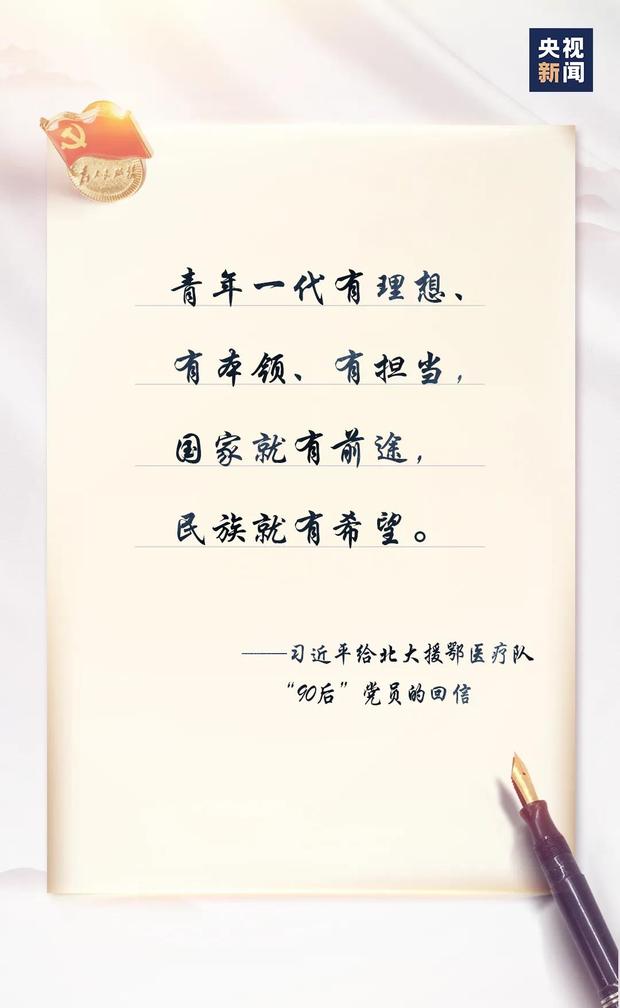 央视
新闻
为人民服务
青年一代有理想、
有本领、有担当，
国家就有前途，
民族就有希望。
——习近平给北大援鄂医疗队
“90后”党员的回信